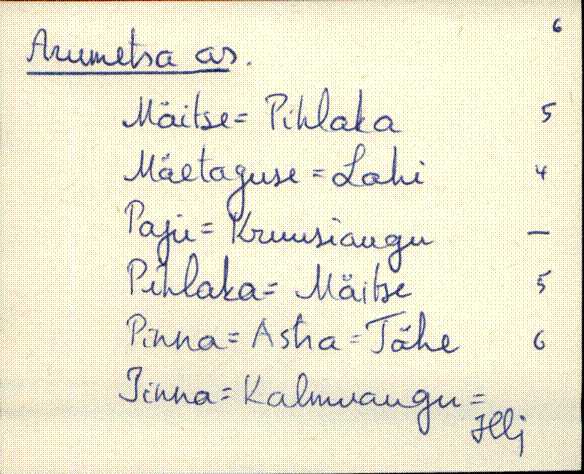 6
Arumetsa as.
Mäitse = Pihlaka 5
Mäetaguse = Lahi 4
Paju = Kruusiaugu —
Pihlaka = Mäitse 5
Pinna = Astra = Tähe 6
Pinna = Kalmuaugu =